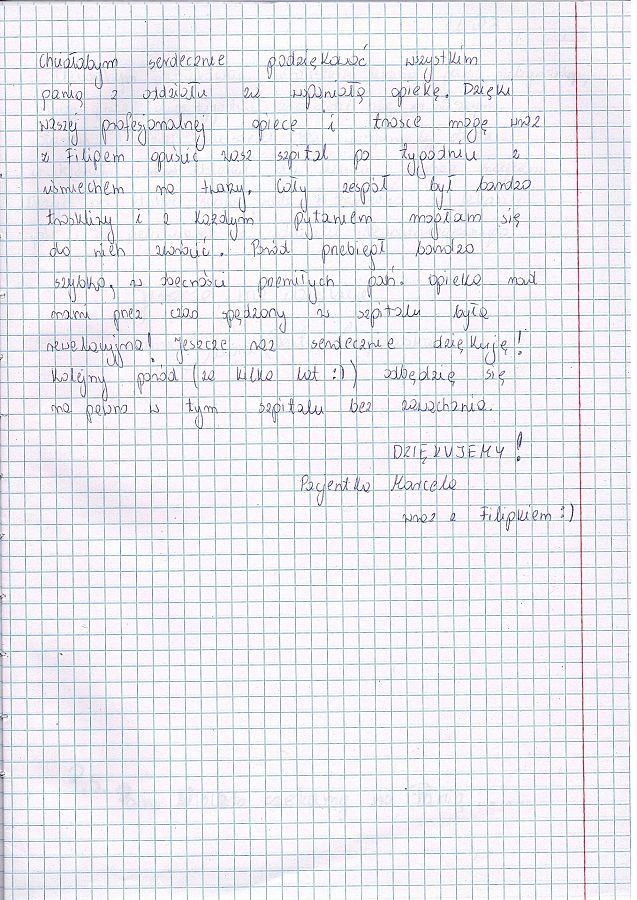 Chciałabym serdecznie podziękować wszystkim
panią z oddziału za wspaniałą opiekę. Dzięki
waszej profesjonalnej opiece i trosce mogę wraz
z Filipem opuścić wasz szpital po tygodniu z
uśmiechem na twarzy. Cały zespół był bardzo
troskliwy i z każdym pytaniem mogłam się
do nich zwrócić. Poród przebiegł bardzo
szybko, w obecności przemiłych pań. Opieka nad
nami przez czas spędzony w szpitalu była
rewelacyjna! Jeszcze raz serdecznie dziękuję!
Kolejny poród (za kilka lat :)) odbędzie się
na pewno w tym szpitalu bez zawachania.
DZIĘKUJEMY!
Pacjentka Marcela
wraz z Filipkiem :)